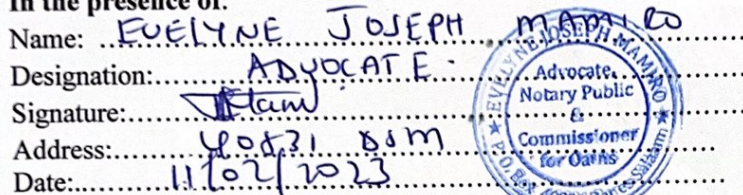 In the presence of:
Name: EVELYNE JOSEPH MAMIRO
Designation: ADVOCATE
Signature:
Address: DSM
Date: 11/02/2023
EVELYNE JOSEPH MAMIRO
Advocate,
Notary Public
&
Commissioner
for Oaths
P.O. Box Salaam